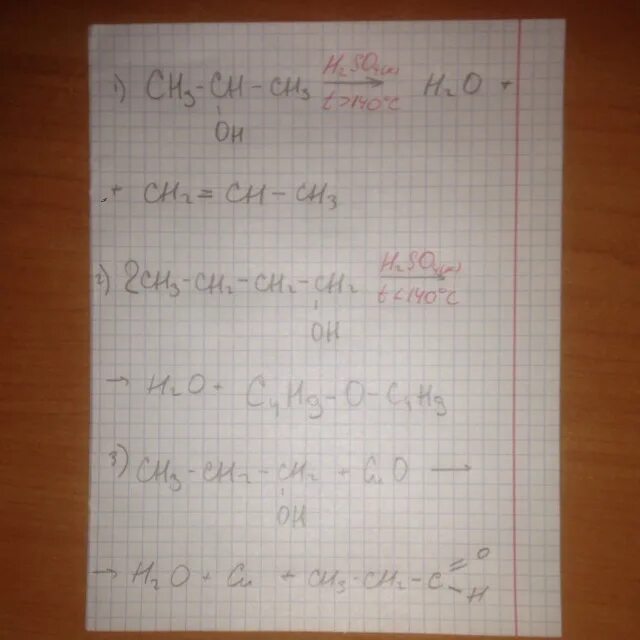 1) CH3-CH-CH3 H2SO4(к) t>140°C → H2O +
OH
+ CH2=CH-CH3
2) 2CH3-CH2-CH2-CH2 H2SO4(к) t<140°C →
OH
→ H2O + C4H9-O-C4H9
3) CH3-CH2-CH2 + CuO →
OH
→ H2O + Cu + CH3-CH2-C=O
-H